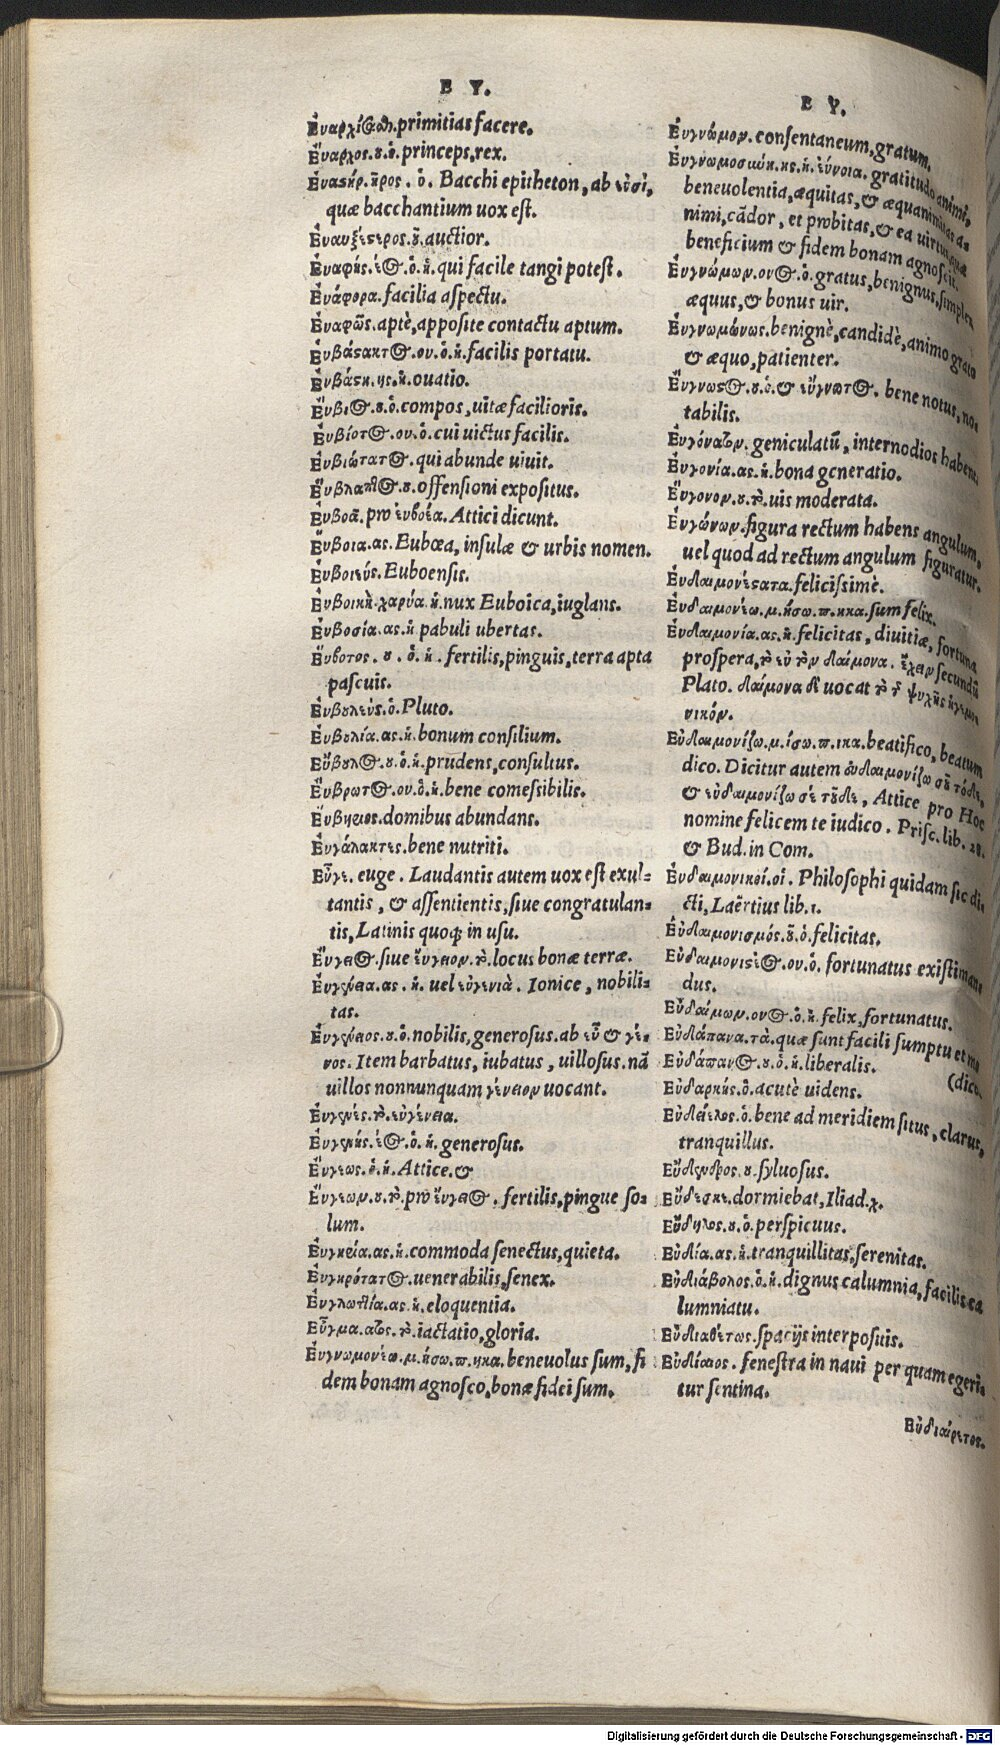 Ε Υ.
Εὐαρχίζεσθαι. primitias facere.
Εὔαρχος.ου.ὁ. princeps, rex.
Εὐαστήρ.ῆρος. ὁ. Bacchi epitheton, ab εὐσί,
quæ bacchantium uox est.
Εὐαυξέστερος.ου. auctior.
Εὐαφής.έος.ὁ.ἡ. qui facile tangi potest.
Εὐάφορα. facilia aspectu.
Εὐαφῶς. aptè, apposite contactu aptum.
Εὐβάστακτος.ου.ὁ.ἡ. facilis portatu.
Εὐβάστη.ης.ἡ. ouatio.
Εὔβιος.ου.ὁ. compos, uitæ facilioris.
Εὐβίοτος.ου.ὁ. cui uictus facilis.
Εὐβιώτατος. qui abunde uiuit.
Εὔβλαπτος.ου. offensioni expositus.
Εὐβοᾶ. pro εὐβοέα. Attici dicunt.
Εὔβοια.ας. Eubœa, insulæ & urbis nomen.
Εὐβοιεύς. Euboensis.
Εὐβοικὴ χαρύα.ἡ. nux Euboica, iuglans.
Εὐβοσία.ας.ἡ. pabuli ubertas.
Εὔβοτος.ου.ὁ.ἡ. fertilis, pinguis, terra apta
pascuis.
Εὐβουλεύς.ὁ. Pluto.
Εὐβουλία.ας.ἡ. bonum consilium.
Εὔβουλος.ου.ὁ.ἡ. prudens, consultus.
Εὔβρωτος.ου.ὁ.ἡ. bene comessibilis.
domibus abundans.
Εὐγάλακτες. bene nutriti.
Εὖγε. euge. Laudantis autem uox est exul=
tantis, & assentientis, siue congratulan=
tis, Latinis quoq; in usu.
Εὔγειος. siue εὔγειον.τὸ. locus bonæ terræ.
Εὐγένεια.ας.ἡ. uel εὐγενιὰ. Ionice, nobili=
tas.
Εὐγένειος.ου.ὁ. nobilis, generosus. ab εὖ & γέ=
νος. Item barbatus, iubatus, uillosus. nã
uillos nonnunquam γένειον uocant.
Εὐγενές.τὸ. εὐγένεια.
Εὐγενής.έος.ὁ.ἡ. generosus.
Εὔγεως.ὁ.ἡ. Attice. &
Εὔγεων.ου.τὸ. pro εὔγειος. fertilis, pingue so=
lum.
Εὐγηρεία.ας.ἡ. commoda senectus, quieta.
Εὐγηρότατος. uenerabilis, senex.
Εὐγλωττία.ας.ἡ. eloquentia.
Εὖγμα.ατος.τὸ. iactatio, gloria.
Εὐγνωμονέω.μ.ήσω.π.ηκα. beneuolus sum, fi
dem bonam agnosco, bonæ fidei sum.
Ε Υ.
Εὔγνωμον. consentaneum, gratum.
Εὐγνωμοσύνη.ης.ἡ. εὔνοια. gratitudo animi,
beneuolentia, æquitas, & æquanimitas a=
nimi, cãdor, et probitas, & ea uirtus, quæ
beneficium & fidem bonam agnoscit.
Εὐγνώμων.ονος.ὁ. gratus, benignus, simplex
æquus, & bonus uir.
Εὐγνωμόνως. benignè, candidè, animo grato
& æquo, patienter.
Εὔγνωστος.ου.ὁ. & εὔγνωτος. bene notus, no=
tabilis.
Εὐγόνατον. geniculatũ, internodios habens.
Εὐγονία.ας.ἡ. bona generatio.
Εὔγονον.ου.τὸ. uis moderata.
Εὐγώνων. figura rectum habens angulum,
uel quod ad rectum angulum figuratur.
Εὐδαιμονέστατα. felicissimè.
Εὐδαιμονέω.μ.ήσω.π.ηκα. sum felix.
Εὐδαιμονία.ας.ἡ. felicitas, diuitiæ, fortuna
prospera, τὸ εὖ τὸν δαίμονα. ἔχειν secundũ
Plato. δαίμονα δὲ uocat τὸ τῆς ψυχῆς ἡγεμο
νικόν.
Εὐδαιμονίζω.μ.ίσω.π.ικα. beatifico, beatum
dico. Dicitur autem εὐδαιμονίζω σοῦ τόδε,
& εὐδαιμονίζω σὲ τοῦδε, Attice pro Hoc
nomine felicem te iudico. Prisc. lib. 18.
& Bud. in Com.
Εὐδαιμονικοί.οἱ. Philosophi quidam sic di
cti, Laërtius lib. 1.
Εὐδαιμονισμός.οῦ.ὁ. felicitas.
Εὐδαιμονιστέος.ου.ὁ. fortunatus existiman=
dus.
Εὐδαίμων.ονος.ὁ.ἡ. felix, fortunatus.
Εὐδάπανα.τὰ. quæ sunt facili sumptu et mo
Εὐδάπανος.ου.ὁ.ἡ. liberalis. (dico.
Εὐδαρκής.ὁ. acutè uidens.
Εὐδείελος.ὁ. bene ad meridiem situs, clarus,
tranquillus.
Εὔδενδρος.ου. syluosus.
Εὕδεσκε. dormiebat, Iliad. χ.
Εὔδηλος.ου.ὁ. perspicuus.
Εὐδία.ας.ἡ. tranquillitas, serenitas.
Εὐδιάβολος.ὁ.ἡ. dignus calumnia, facilis ca
lumniatu.
Εὐδιαθέτως. spacijs interpositis.
Εὐδίαιος. fenestra in naui per quam egeri=
tur sentina.
Εὐδιαίρετος.
Digitalisierung gefördert durch die Deutsche Forschungsgemeinschaft - DFG